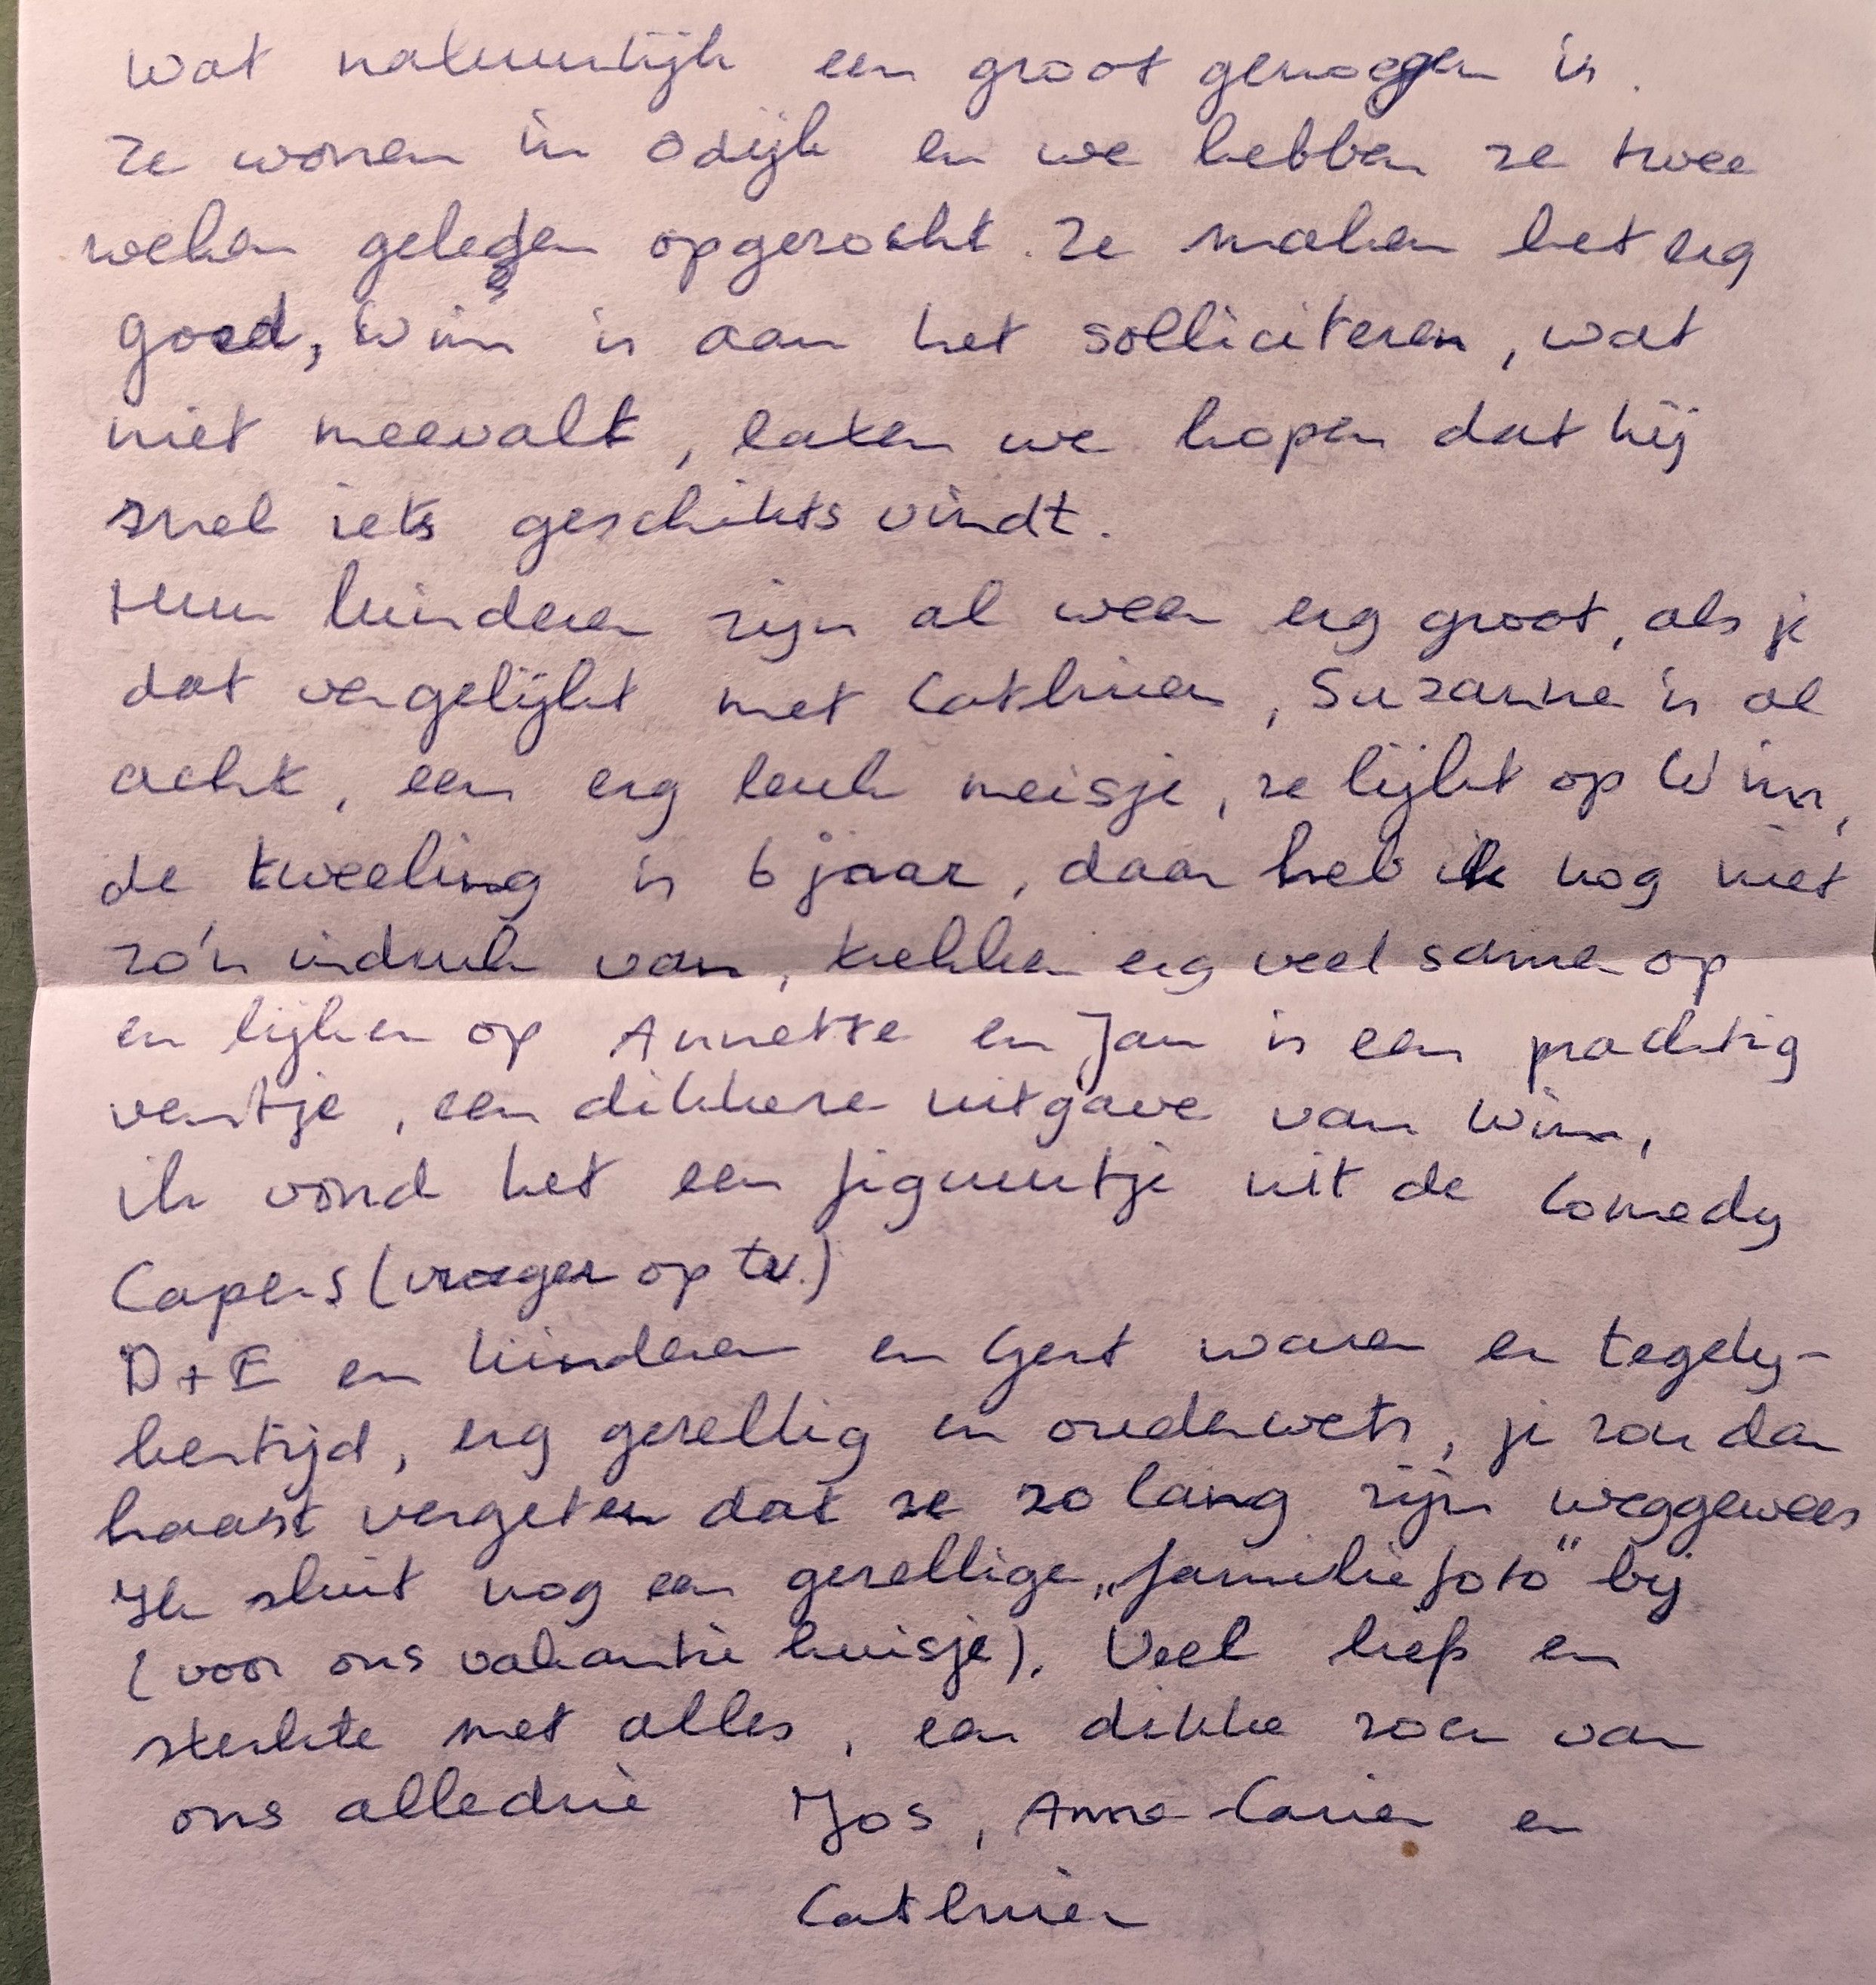 wat natuurlijk een groot genoegen is.
Ze wonen in Odijk en we hebben ze twee
weken geleden opgezocht. Ze maken het erg
goed, Wim is aan het solliciteren, wat
niet meevalt, laten we hopen dat hij
snel iets geschikts vindt.
Hun kinderen zijn al weer erg groot, als je
dat vergelijkt met Cathrien, Suzanne is al
acht, een erg leuk meisje, ze lijkt op Wim,
de tweeling is 6 jaar, daar heb ik nog niet
zo'n indruk van, trekken erg veel samen op
en lijken op Annette en Jan is een prachtig
ventje, een dikkere uitgave van Wim,
ik vond het een figuurtje uit de Comedy
Capers (vroeger op tv.)
D+E en kinderen en Gert waren er tegely-
kertijd, erg gezellig en ouderwets, je zou dan
haast vergeten dat ze zo lang zijn weggewees
Ik sluit nog een gezellige „familiefoto" bij
(voor ons vakantie huisje). Veel liefs en
sterkte met alles, een dikke zoen van
ons alledrie Jos, Anne-Carien en
Cathrien